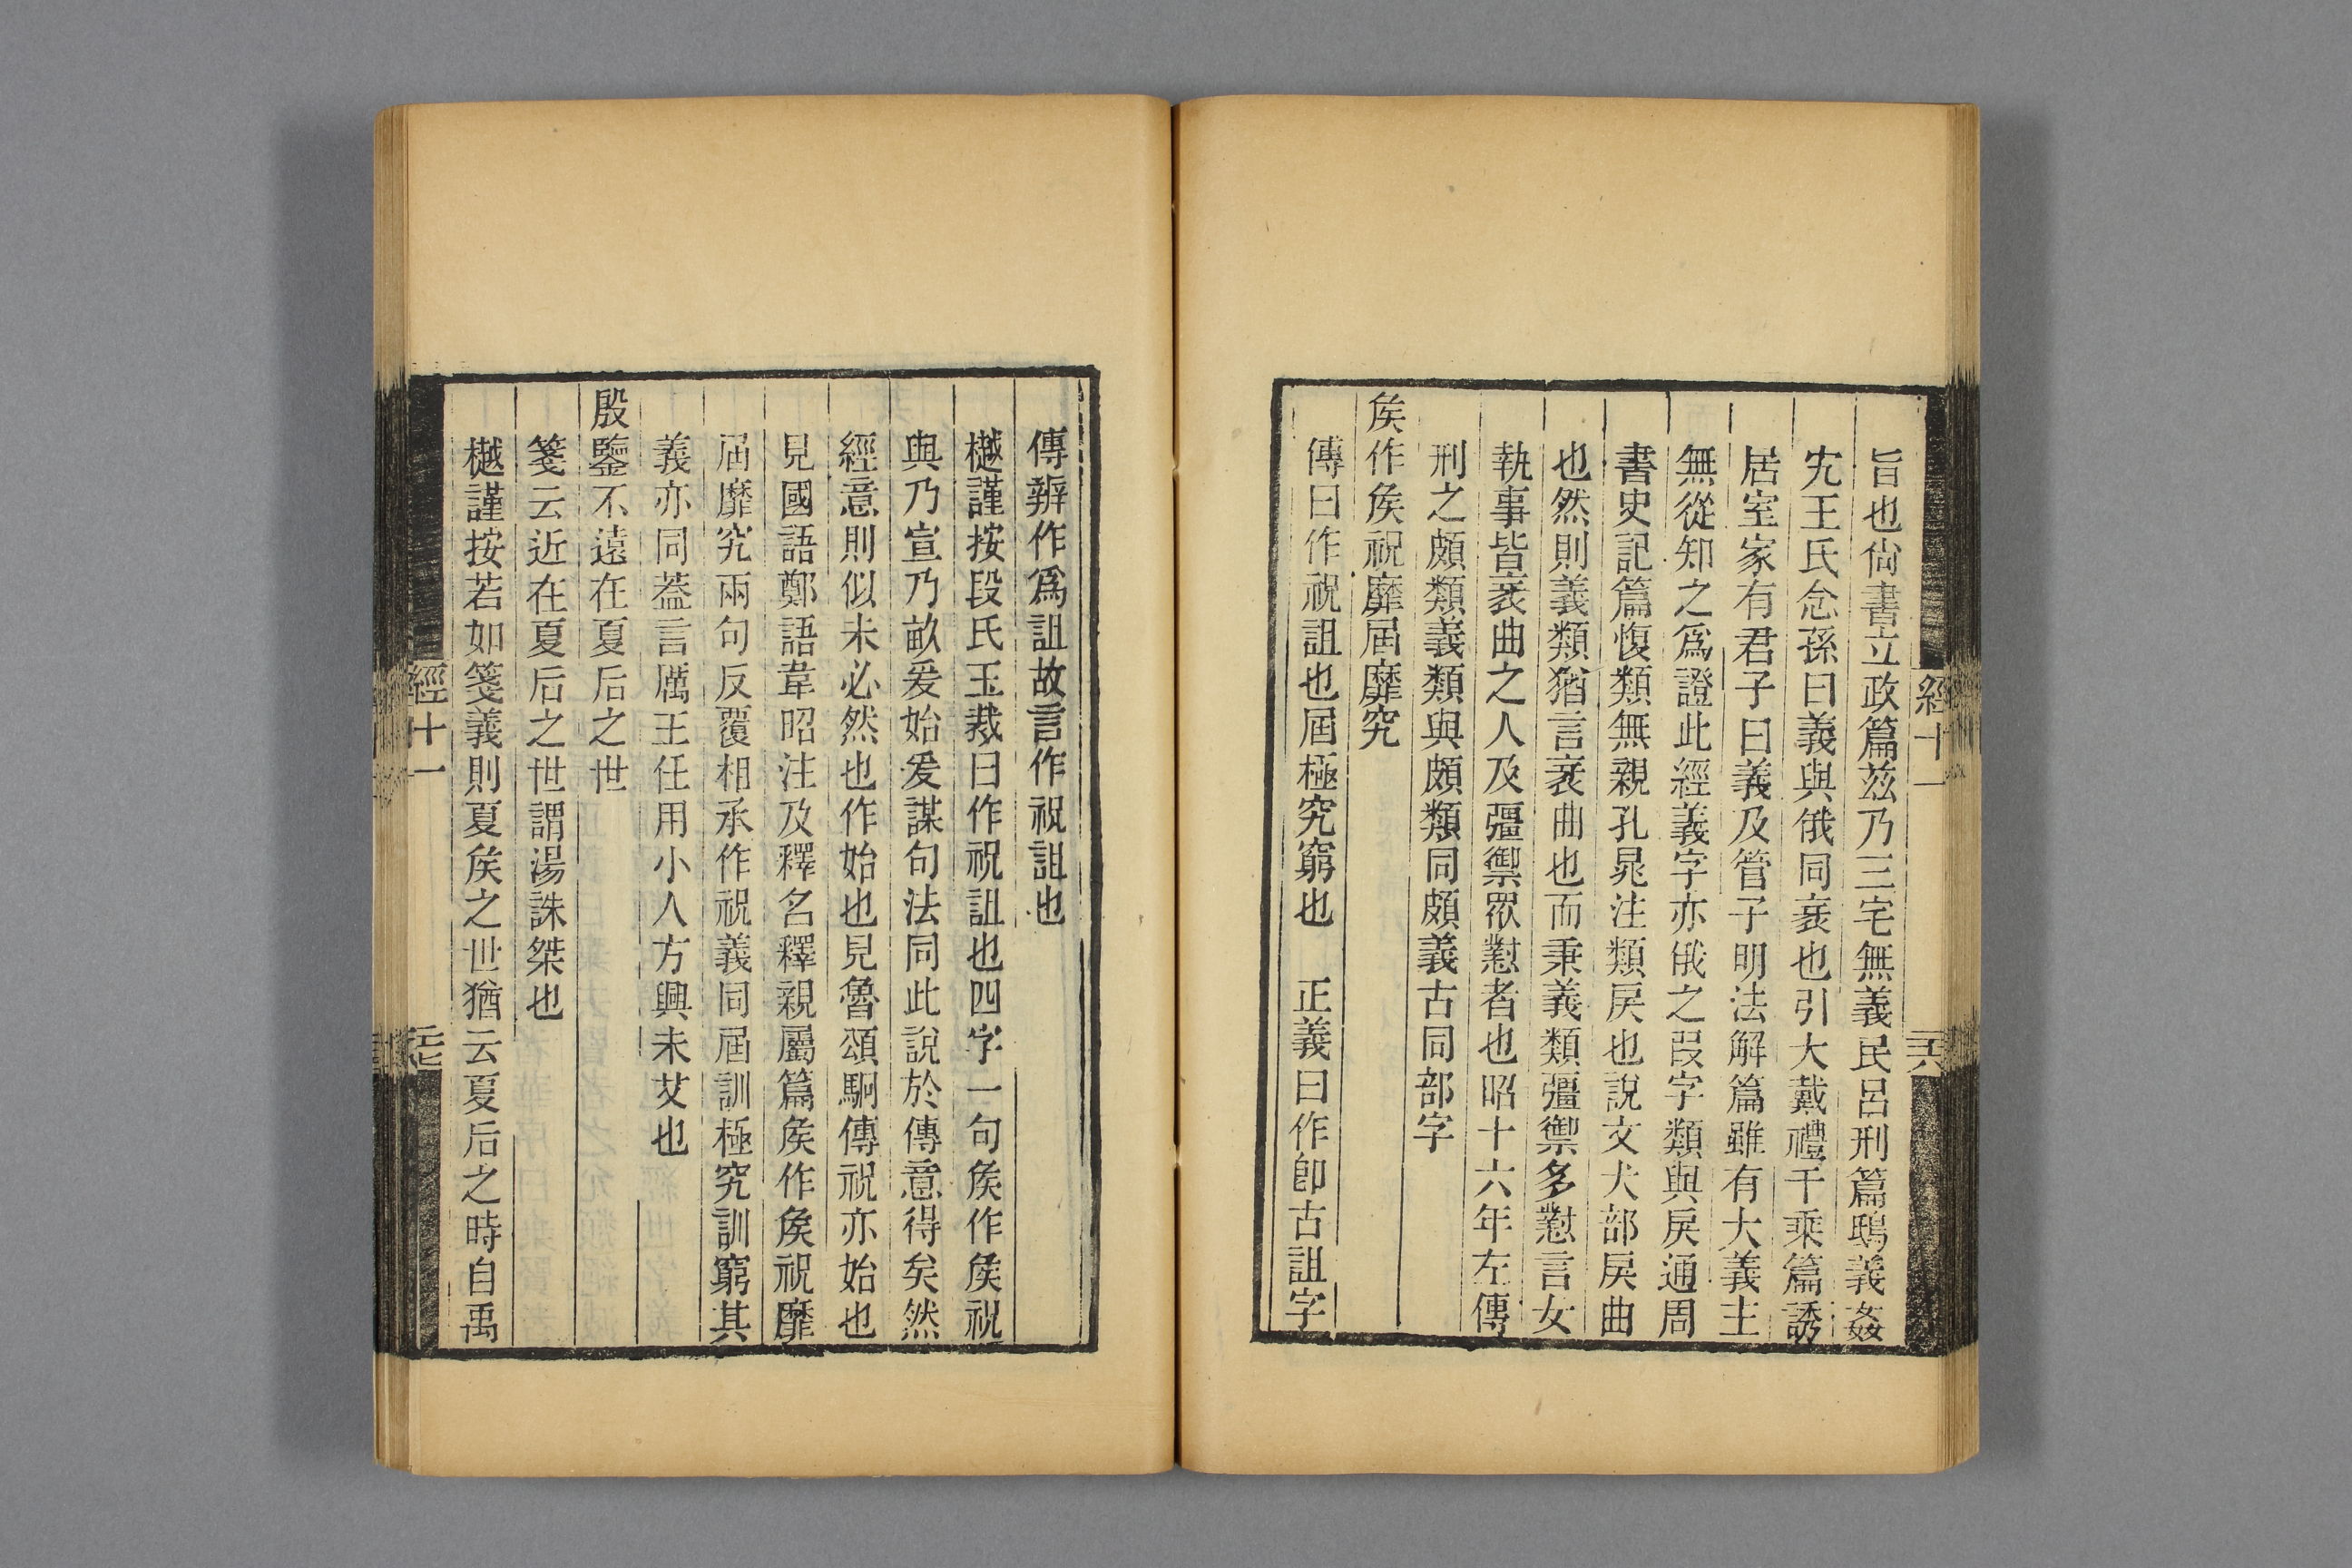 旨也尙書立政篇茲乃三宅無義民呂刑篇鴟義姦
宄王氏念孫曰義與俄同衺也引大戴禮千乘篇誘
居室家有君子曰義及管子明法解篇雖有大義主
無從知之爲證此經義字亦俄之叚字類與戾通周
書史記篇愎類無親孔晁注類戾也說文犬部戾曲
也然則義類猶言衺曲也而秉義類彊禦多懟言女
執事皆衺曲之人及彊禦眾懟者也昭十六年左傳
刑之頗類義類與頗類同頗義古同部字
矦作矦祝靡屆靡究
傳曰作祝詛也屆極究窮也 正義曰作卽古詛字
經十一
二十六
傳辨作爲詛故言作祝詛也
樾謹按段氏玉裁曰作祝詛也四字一句矦作矦祝
與乃宣乃畝爰始爰謀句法同此說於傳意得矣然
經意則似未必然也作始也見魯頌駉傳祝亦始也
見國語鄭語韋昭注及釋名釋親屬篇矦作矦祝靡
屆靡究兩句反覆相承作祝義同屆訓極究訓窮其
義亦同葢言厲王任用小人方興未艾也
殷鑒不遠在夏后之世
箋云近在夏后之世謂湯誅桀也
樾謹按若如箋義則夏矦之世猶云夏后之時自禹
經十一
二十七